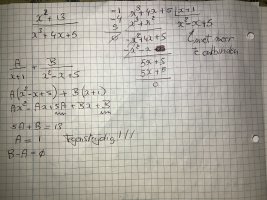 x² + 13
x³ + 4x + 5
A
x+1
+
B
x² - x + 5
A(x² - x + 5) + B(x+1)
Ax² - Ax + 5A + Bx + B
5A + B = 13
A = 1 Tegenstrijdig!!!
B - A = 0
-1
-4
x³ + 4x + 5 | x+1
x³ + x²
x² - x + 5
-x² + 4x + 5
-x² - x
5x + 5
5x + 5
0
niet meer
te ontbinden